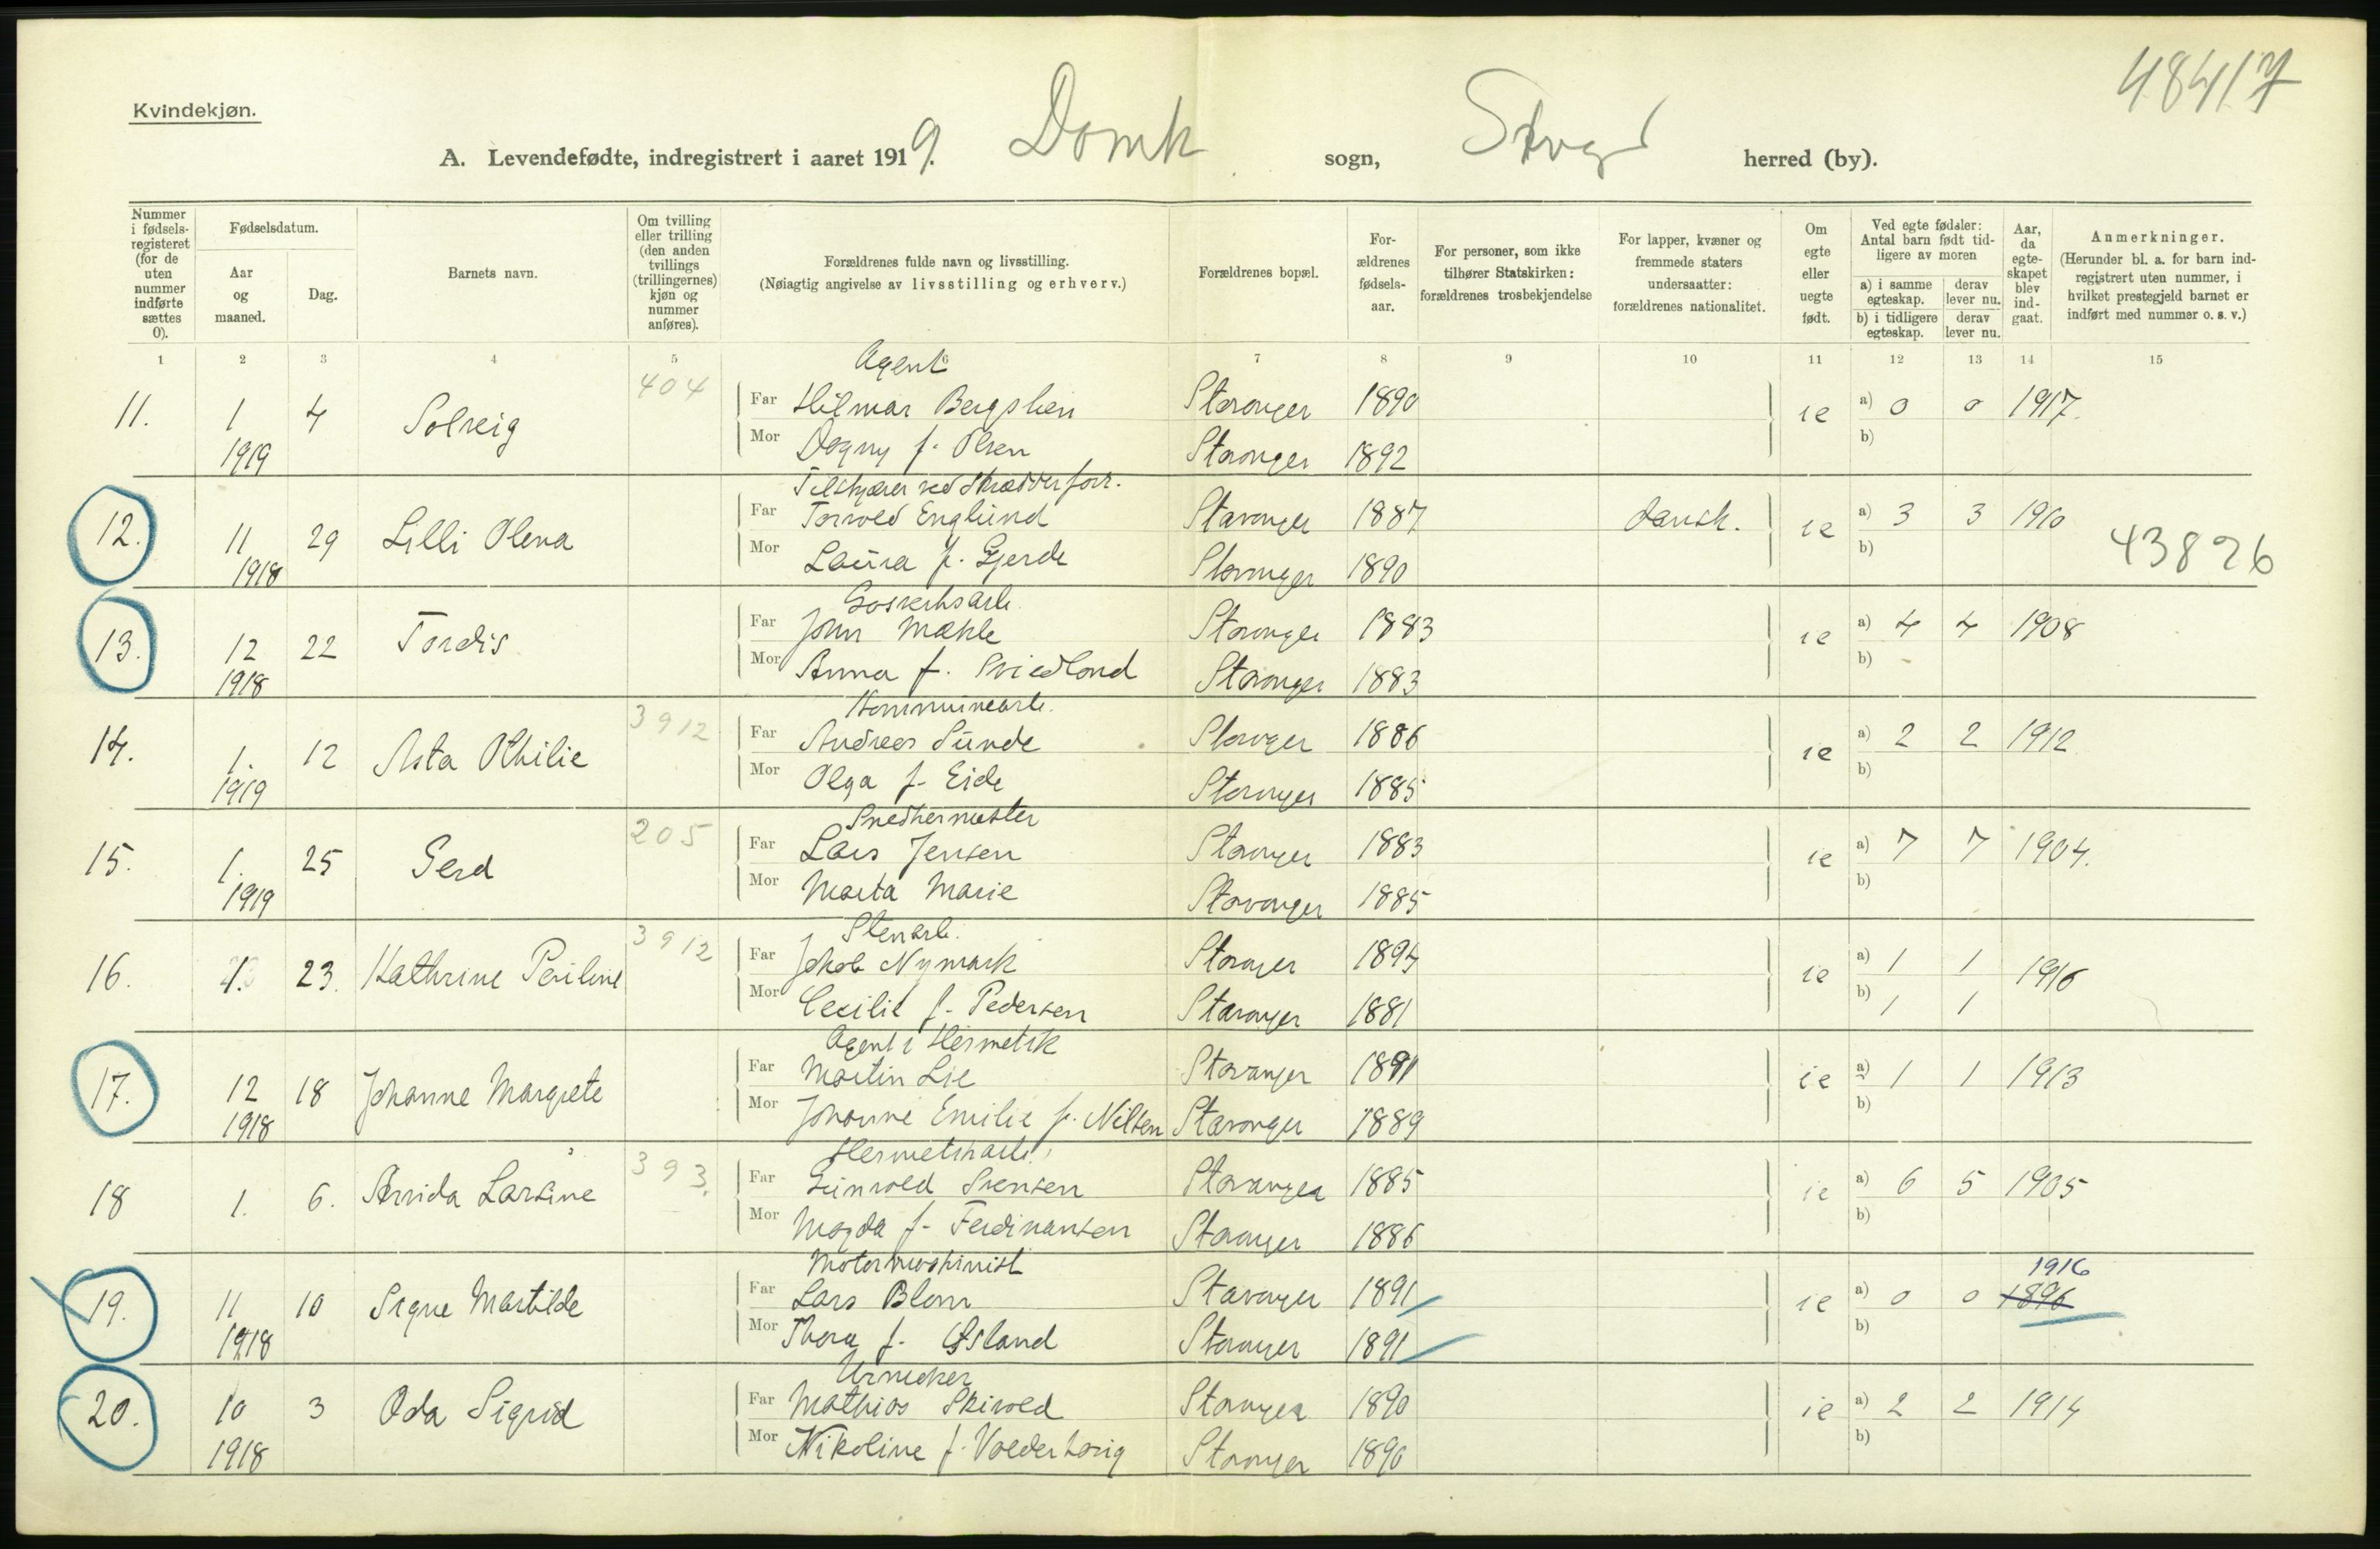 48417
Kvindekjøn.
A. Levendefødte, indregistrert i aaret 1919. Domk sogn, herred (by).
Nummer i fødsels-registeret (for de uten nummer indførte sættes 0).
Fødselsdatum.
Aar og maaned.
Dag.
Barnets navn.
Om tvilling eller trilling (den anden tvillings (trillingernes) kjøn og nummer anføres).
Forældrenes fulde navn og livsstilling.
(Nøiagtig angivelse av livsstilling og erhverv.)
Forældrenes bopæl.
For-ældrenes fødsels-aar.
For personer, som ikke tilhører Statskirken: forældrenes trosbekjendelse
For lapper, kvæner og fremmede staters undersaatter: forældrenes nationalitet.
Om egte eller uegte født.
Ved egte fødsler: Antal barn født tid-ligere av moren
a) i samme egteskap. derav lever nu.
b) i tidligere egteskap. derav lever nu.
Aar, da egte-skapet blev ind-gaat.
Anmerkninger.
(Herunder bl. a. for barn ind-registrert uten nummer, i hvilket prestegjeld barnet er indført med nummer o. s. v.)
1 2 3 4 5 6 7 8 9 10 11 12 13 14 15
404 Agent
11. 1 4 Solveig Far Hilmar Bergslien Stavanger 1890 ie a) 0 0 1917.
1919 Mor Dagny f. Olsen Stavanger 1892 b)
Tilskjærer ved skrædderforr.
12. 11 29 Lilli Olena Far Torvold Englund Stavanger 1887 dansk. ie a) 3 3 1910
1918 Mor Laura f. Gjerde Stavanger 1890 b) 43826
Gasverksarb.
13. 12 22 Tordis Far John Mæhle Stavanger 1883 ie a) 4 4 1908
1918 Mor Anna f. Stavanger 1883 b) -
3912 Kommunearb.
14. 1. 12 Asta Othilie Far Andreas Sunde Stavanger 1886 ie a) 2 2 1912
1919 Mor Olga f. Eide Stavanger 1885 b)
205 Snedkermester
15. 1. 25 Gerd Far Lars Jensen Stavanger 1883 ie a) 7 7 1904.
1919 Mor Marta Marie Stavanger 1885 b)
3912 Stenarb.
16. 1. 23. Kathrine Far Jakob Nymark Stavanger 1894 ie a) 1 1 1916
Mor Cecilie f. Pedersen Stavanger 1881 b) 1 1
Agent i Hermetik
17. 12 18 Johanne Margrete Far Martin Lie Stavanger 1891 ie a) 1 1 1913
1918 Mor Johanne Emilie f. Nilsen Stavanger 1889 b)
393. Hermetikarb.
18 1. 6. Arvida Larsine Far Svensen Stavanger 1885 ie a) 6 5 1905
Mor Magda f. Ferdinansen Stavanger 1886 b)
Motormaskinist 1916
19. 11 10 Signe Martilde Far Lars Blom Stavanger 1891 ie a) 0 0 1896
1918 Mor Thora f. Østland Stavanger 1891 b)
Urmaker
20. 10 3 Oda Sigrid Far Mathias Skivold Stavanger 1890 ie a) 2 2 1914
1918 Mor Nikoline f. Stavanger 1890 b)